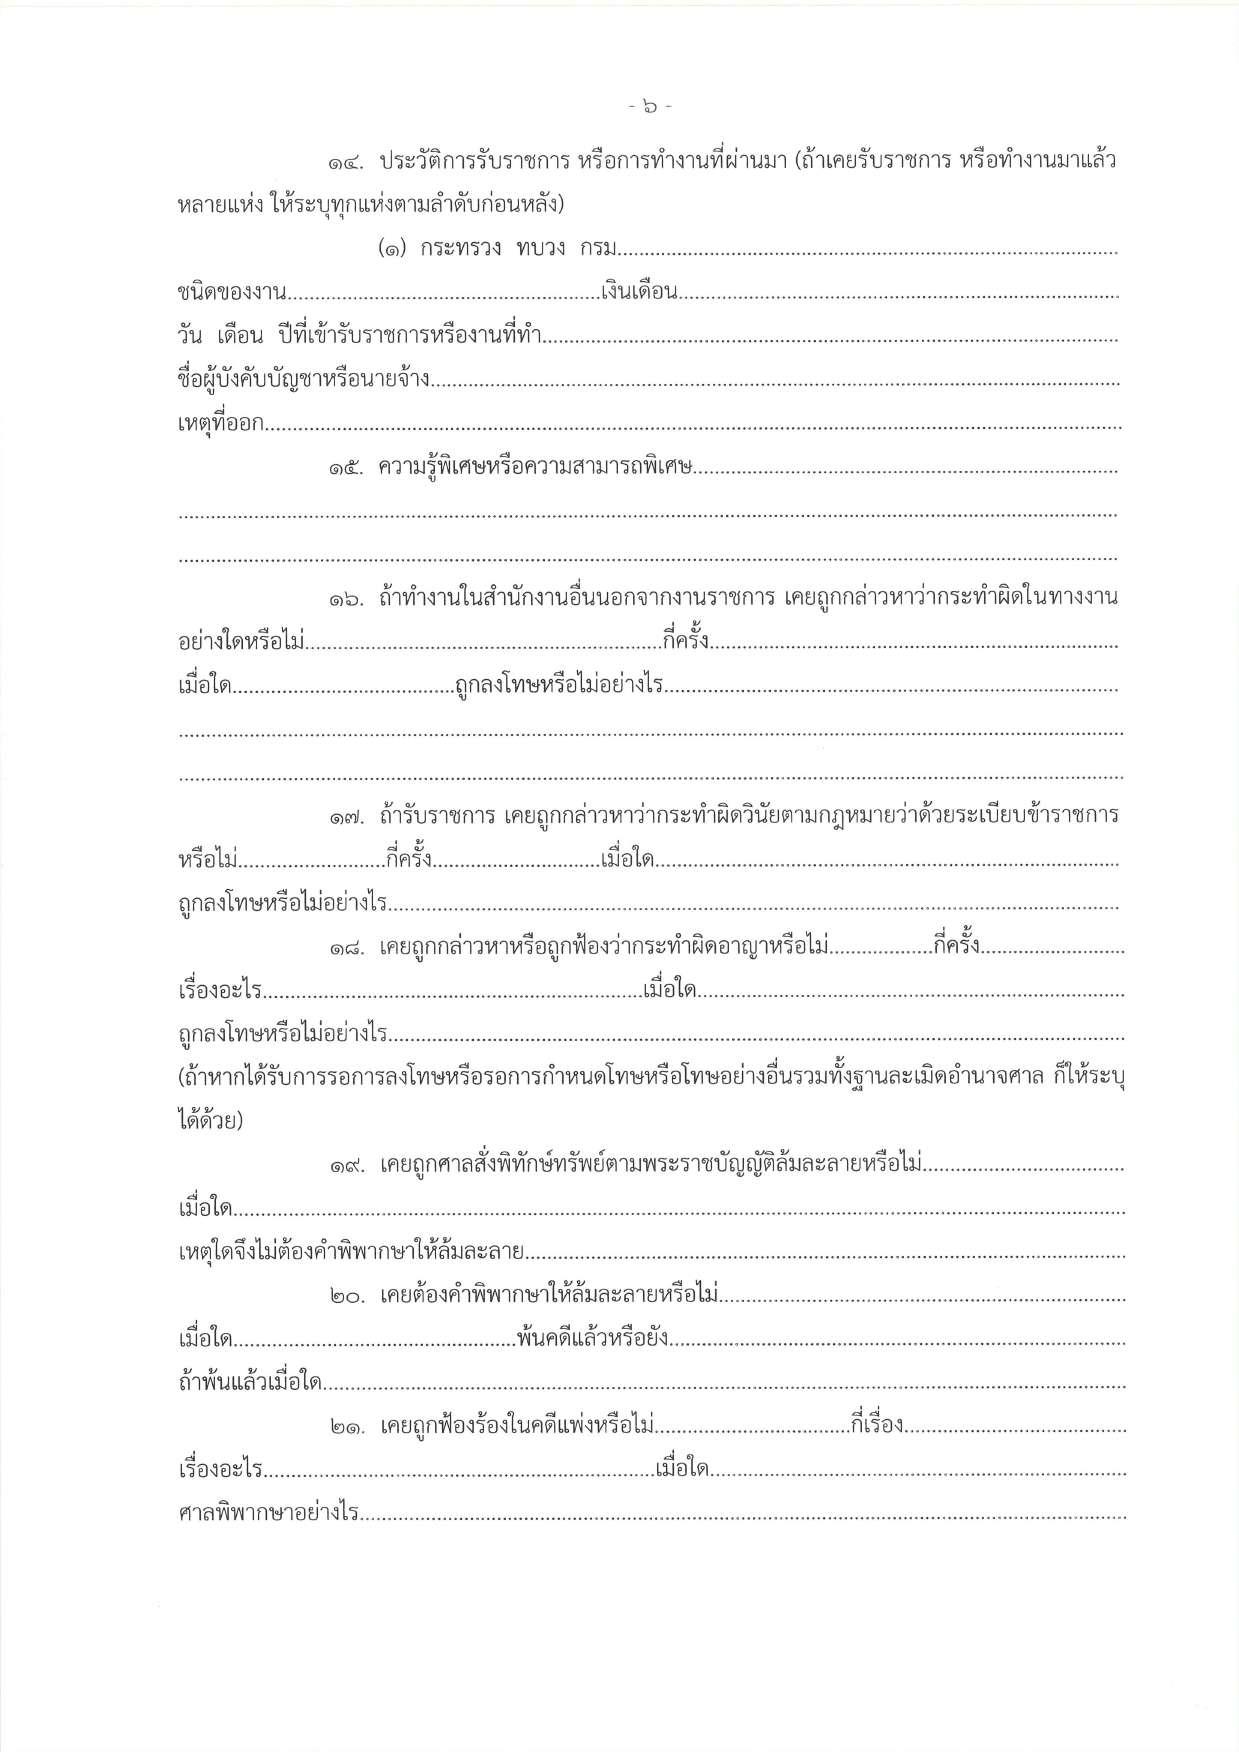 - ๖ -
๑๔. ประวัติการรับราชการ หรือการทำงานที่ผ่านมา (ถ้าเคยรับราชการ หรือทำงานมาแล้ว
หลายแห่ง ให้ระบุทุกแห่งตามลำดับก่อนหลัง)
(๑) กระทรวง ทบวง กรม....................
ชนิดของงาน....................เงินเดือน....................
วัน เดือน ปีที่เข้ารับราชการหรืองานที่ทำ....................
ชื่อผู้บังคับบัญชาหรือนายจ้าง....................
เหตุที่ออก....................
๑๕. ความรู้พิเศษหรือความสามารถพิเศษ....................
....................
....................
๑๖. ถ้าทำงานในสำนักงานอื่นนอกจากงานราชการ เคยถูกกล่าวหาว่ากระทำผิดในทางงาน
อย่างใดหรือไม่....................กี่ครั้ง....................
เมื่อใด....................ถูกลงโทษหรือไม่อย่างไร....................
....................
....................
๑๗. ถ้ารับราชการ เคยถูกกล่าวหาว่ากระทำผิดวินัยตามกฎหมายว่าด้วยระเบียบข้าราชการ
หรือไม่....................กี่ครั้ง....................เมื่อใด....................
ถูกลงโทษหรือไม่อย่างไร....................
๑๘. เคยถูกกล่าวหาหรือถูกฟ้องว่ากระทำผิดอาญาหรือไม่....................กี่ครั้ง....................
เรื่องอะไร....................เมื่อใด....................
ถูกลงโทษหรือไม่อย่างไร....................
(ถ้าหากได้รับการรอการลงโทษหรือรอการกำหนดโทษหรือโทษอย่างอื่นรวมทั้งฐานละเมิดอำนาจศาล ก็ให้ระบุ
ได้ด้วย)
๑๙. เคยถูกศาลสั่งพิทักษ์ทรัพย์ตามพระราชบัญญัติล้มละลายหรือไม่....................
เมื่อใด....................
เหตุใดจึงไม่ต้องคำพิพากษาให้ล้มละลาย....................
๒๐. เคยต้องคำพิพากษาให้ล้มละลายหรือไม่....................
เมื่อใด....................พ้นคดีแล้วหรือยัง....................
ถ้าพ้นแล้วเมื่อใด....................
๒๑. เคยถูกฟ้องร้องในคดีแพ่งหรือไม่....................กี่เรื่อง....................
เรื่องอะไร....................เมื่อใด....................
ศาลพิพากษาอย่างไร....................